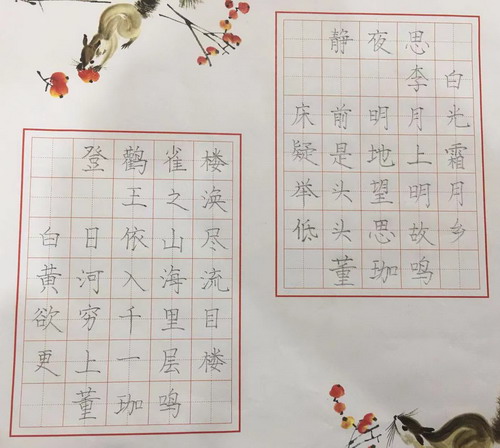 登鹳雀楼
王之涣
白日依山尽
黄河入海流
欲穷千里目
更上一层楼
董珈鸣
静夜思
李白
床前明月光
疑是地上霜
举头望明月
低头思故乡
董珈鸣